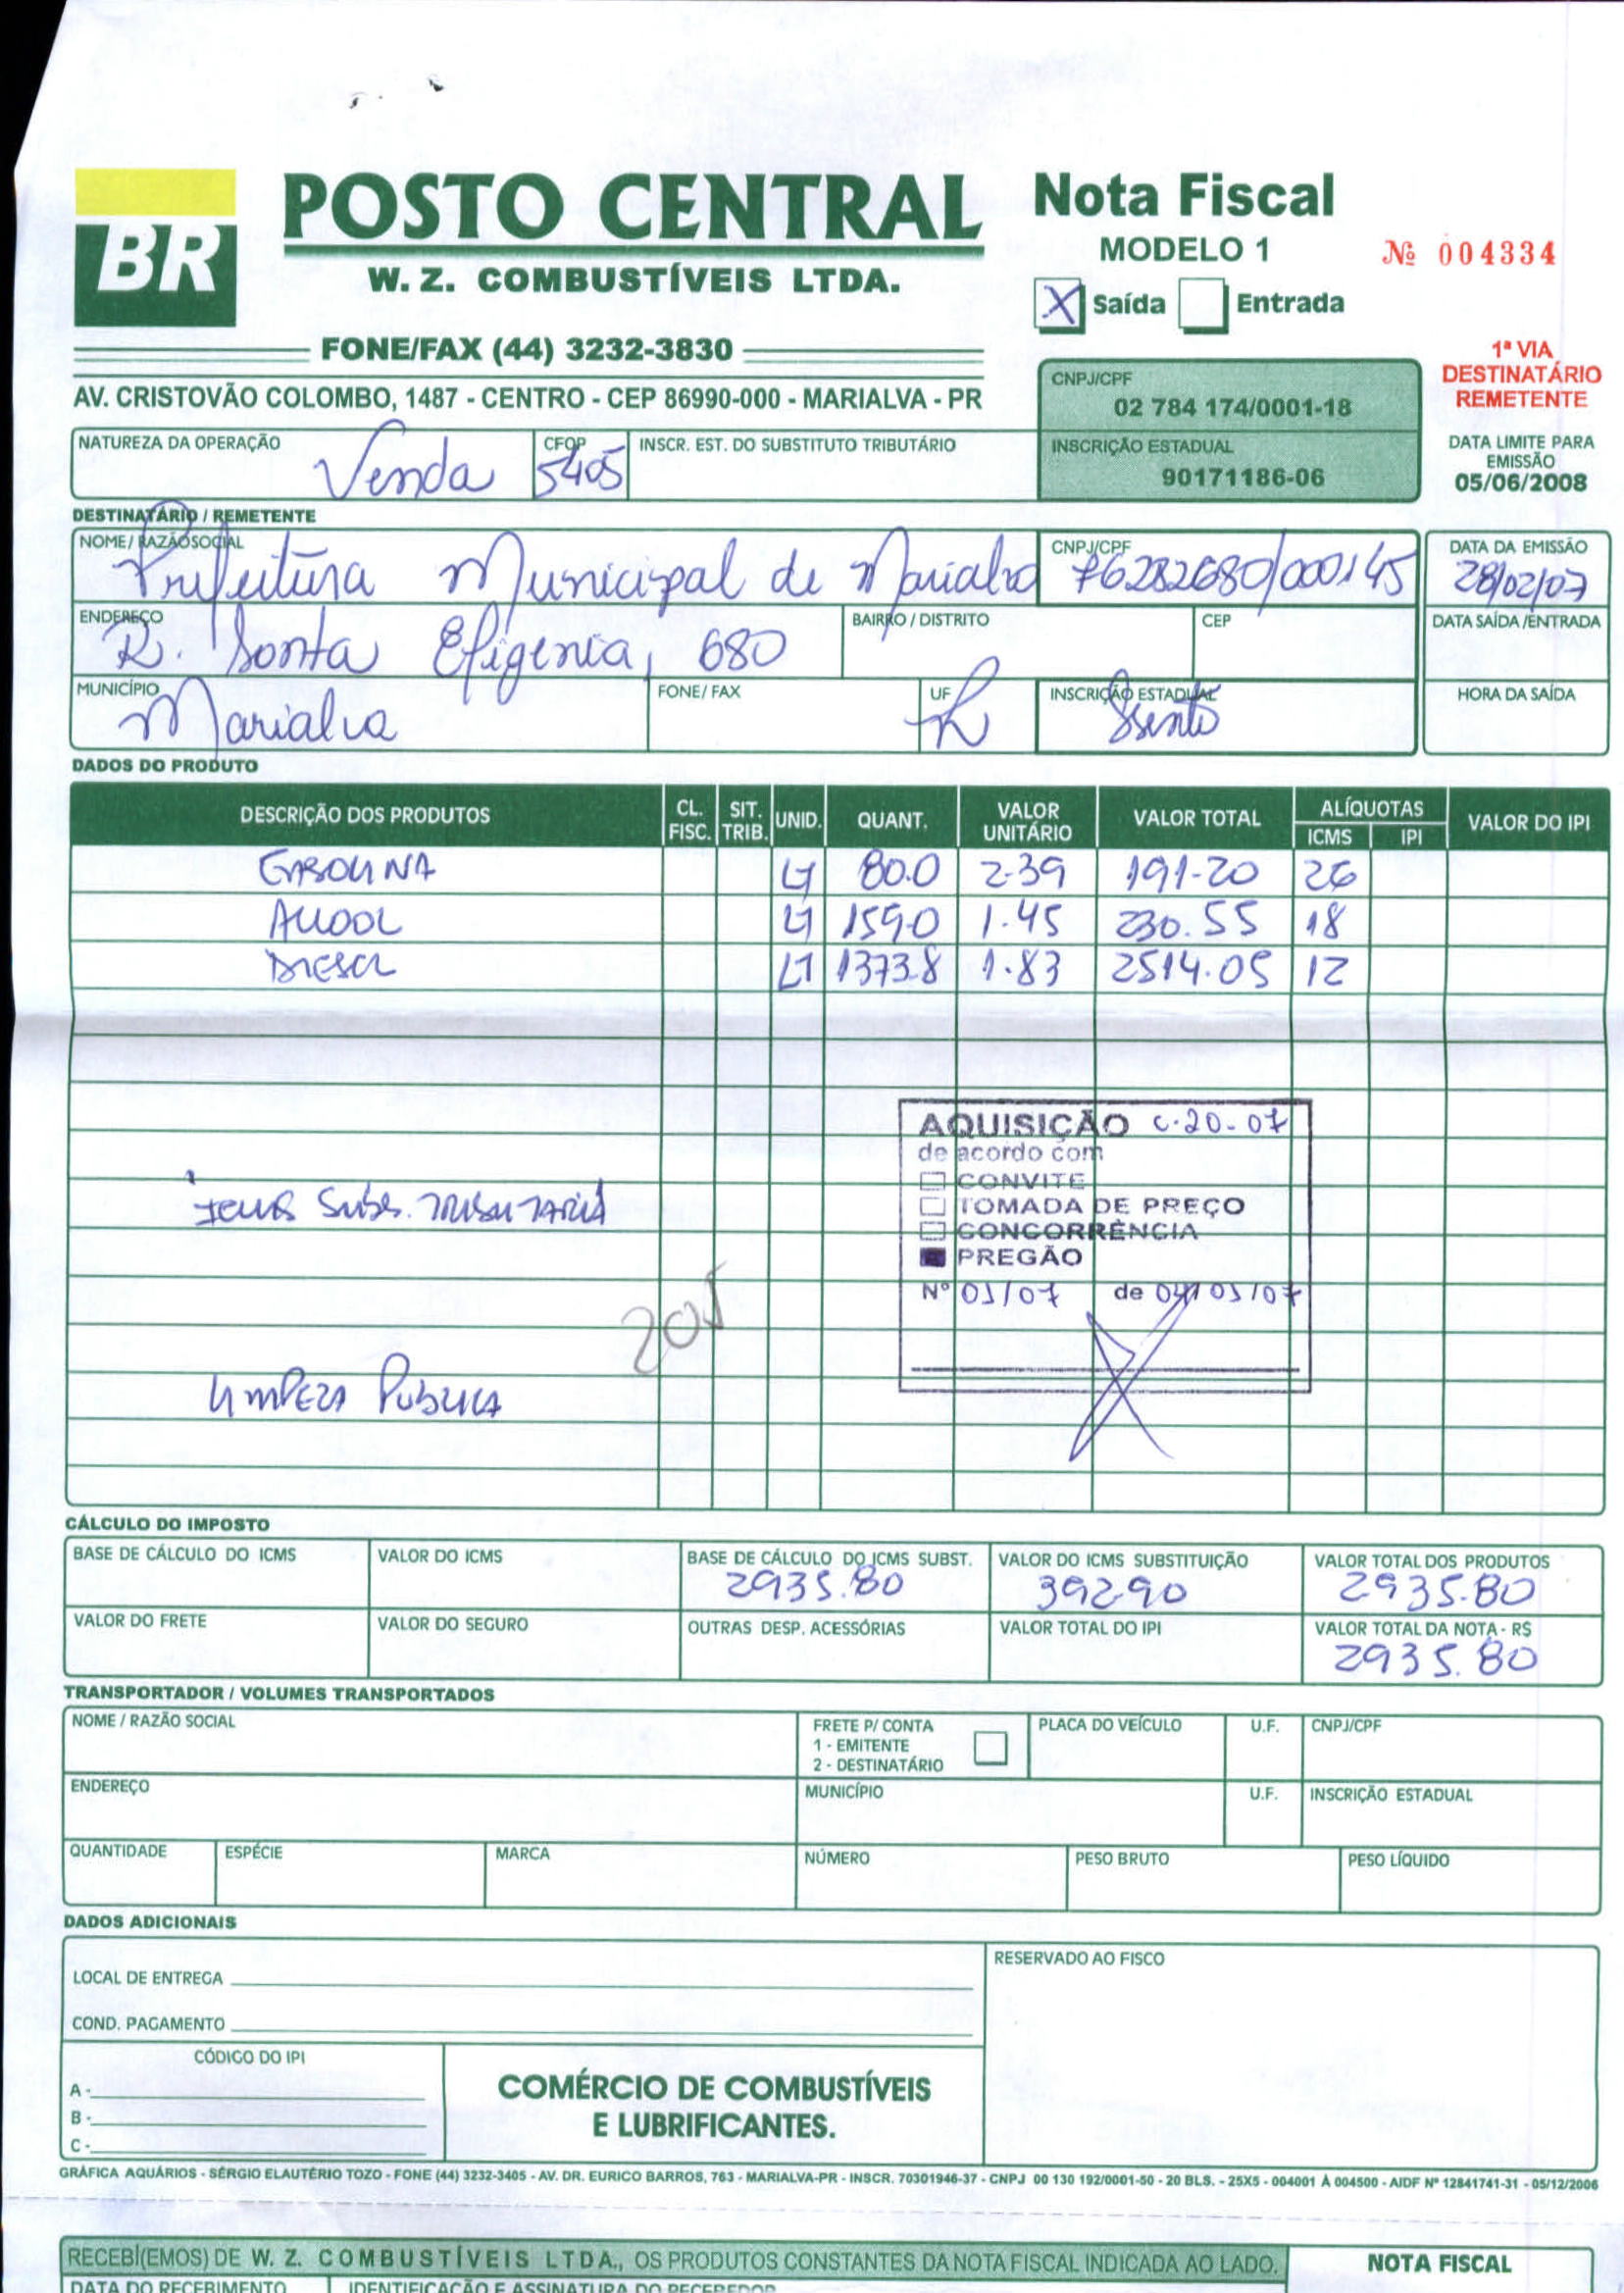 BR
POSTO CENTRAL
W. Z. COMBUSTÍVEIS LTDA.
FONE/FAX (44) 3232-3830
AV. CRISTOVÃO COLOMBO, 1487 - CENTRO - CEP 86990-000 - MARIALVA - PR
Nota Fiscal
MODELO 1
Nº 004334
X Saída Entrada
1ª VIA
DESTINATÁRIO
REMETENTE
CNPJ/CPF
02 784 174/0001-18
INSCRIÇÃO ESTADUAL
90171186-06
DATA LIMITE PARA
EMISSÃO
05/06/2008
NATUREZA DA OPERAÇÃO Venda
CFOP 5405
INSCR. EST. DO SUBSTITUTO TRIBUTÁRIO
DESTINATÁRIO / REMETENTE
NOME/ RAZÃO SOCIAL Prefeitura Municipal de Marialva
CNPJ/CPF 76282680/000145
DATA DA EMISSÃO 28/02/07
ENDEREÇO R. Santa Efigenia, 680
BAIRRO / DISTRITO
CEP
DATA SAÍDA /ENTRADA
MUNICÍPIO Marialva
FONE/ FAX
UF PR
INSCRIÇÃO ESTADUAL Isento
HORA DA SAÍDA
DADOS DO PRODUTO
DESCRIÇÃO DOS PRODUTOS CL. FISC. SIT. TRIB. UNID. QUANT. VALOR UNITÁRIO VALOR TOTAL ALÍQUOTAS ICMS IPI VALOR DO IPI
GASOLINA LT 80.0 2.39 191-20 26
ALCOOL LT 159.0 1.45 230.55 18
DIESEL LT 1373.8 1.83 2514.05 12
AQUISIÇÃO C.20-07
de acordo com
CONVITE
TOMADA DE PREÇO
CONCORRÊNCIA
PREGÃO
Nº 01/07 de 04/01/07
ICMS SUBS. TRIBUTARIA
LIMPEZA PUBLICA
CÁLCULO DO IMPOSTO
BASE DE CÁLCULO DO ICMS
VALOR DO ICMS
BASE DE CÁLCULO DO ICMS SUBST. 2935.80
VALOR DO ICMS SUBSTITUIÇÃO 392.90
VALOR TOTAL DOS PRODUTOS 2935.80
VALOR DO FRETE
VALOR DO SEGURO
OUTRAS DESP. ACESSÓRIAS
VALOR TOTAL DO IPI
VALOR TOTAL DA NOTA - R$ 2935.80
TRANSPORTADOR / VOLUMES TRANSPORTADOS
NOME / RAZÃO SOCIAL
FRETE P/ CONTA
1 - EMITENTE
2 - DESTINATÁRIO
PLACA DO VEÍCULO
U.F.
CNPJ/CPF
ENDEREÇO
MUNICÍPIO
U.F.
INSCRIÇÃO ESTADUAL
QUANTIDADE
ESPÉCIE
MARCA
NÚMERO
PESO BRUTO
PESO LÍQUIDO
DADOS ADICIONAIS
LOCAL DE ENTREGA
COND. PAGAMENTO
RESERVADO AO FISCO
CÓDIGO DO IPI
A -
B -
C -
COMÉRCIO DE COMBUSTÍVEIS
E LUBRIFICANTES.
GRÁFICA AQUÁRIOS - SÉRGIO ELAUTÉRIO TOZO - FONE (44) 3232-3405 - AV. DR. EURICO BARROS, 763 - MARIALVA-PR - INSCR. 70301946-37 - CNPJ 00 130 192/0001-50 - 20 BLS. - 25X5 - 004001 À 004500 - AIDF Nº 12841741-31 - 05/12/2006
RECEBI(EMOS) DE W. Z. COMBUSTÍVEIS LTDA., OS PRODUTOS CONSTANTES DA NOTA FISCAL INDICADA AO LADO.
NOTA FISCAL
DATA DO RECEBIMENTO
IDENTIFICAÇÃO E ASSINATURA DO RECEBEDOR